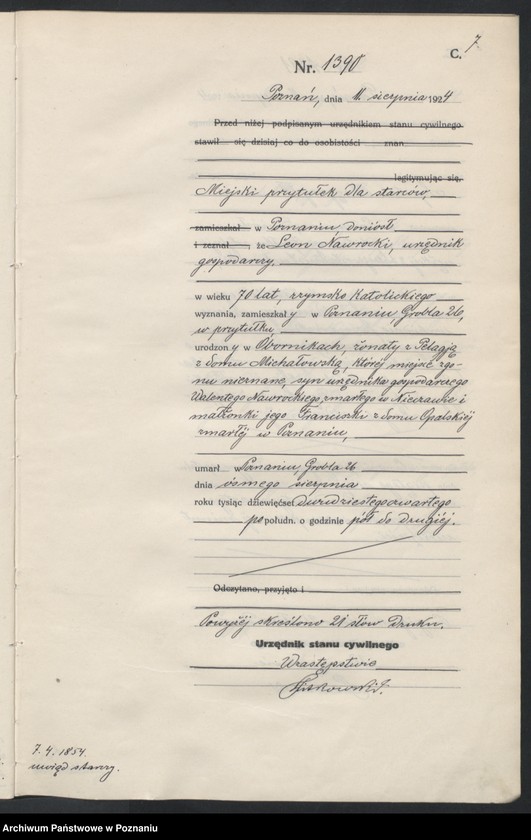 C. 7.
Nr. 1390
Poznań, dnia 11. sierpnia 1924
Przed niżej podpisanym urzędnikiem stanu cywilnego
stawił się dzisiaj co do osobistości znan
legitymując się,
Miejski przytułek dla starców,
zamieszkał w Poznaniu, doniósł
i zeznał, że Leon Nawrocki, urzędnik
gospodarczy.
w wieku 70 lat, rzymsko katolickiego
wyznania, zamieszkały w Poznaniu, Grobla 26,
w przytułku,
urodzony w Obornikach, żonaty z Pelagją
z domu Michałowską, której miejsce zgo-
nu nieznane, syn urzędnika gospodarczego
Walentego Nawrockiego, zmarłego w i
małżonki jego Franciszki z domu Opalskiej
zmarłej w Poznaniu,
umarł w Poznaniu, Grobla 26
dnia ósmego sierpnia
roku tysiąc dziewięćset dwudziestego czwartego
po połudn. o godzinie pół do drugiej.
Odczytano, przyjęto i
Powyżej skreślono 21 słów druku.
Urzędnik stanu cywilnego
W zastępstwie
7. 4. 1854.
uwiąd starczy.
Archiwum Państwowe w Poznaniu